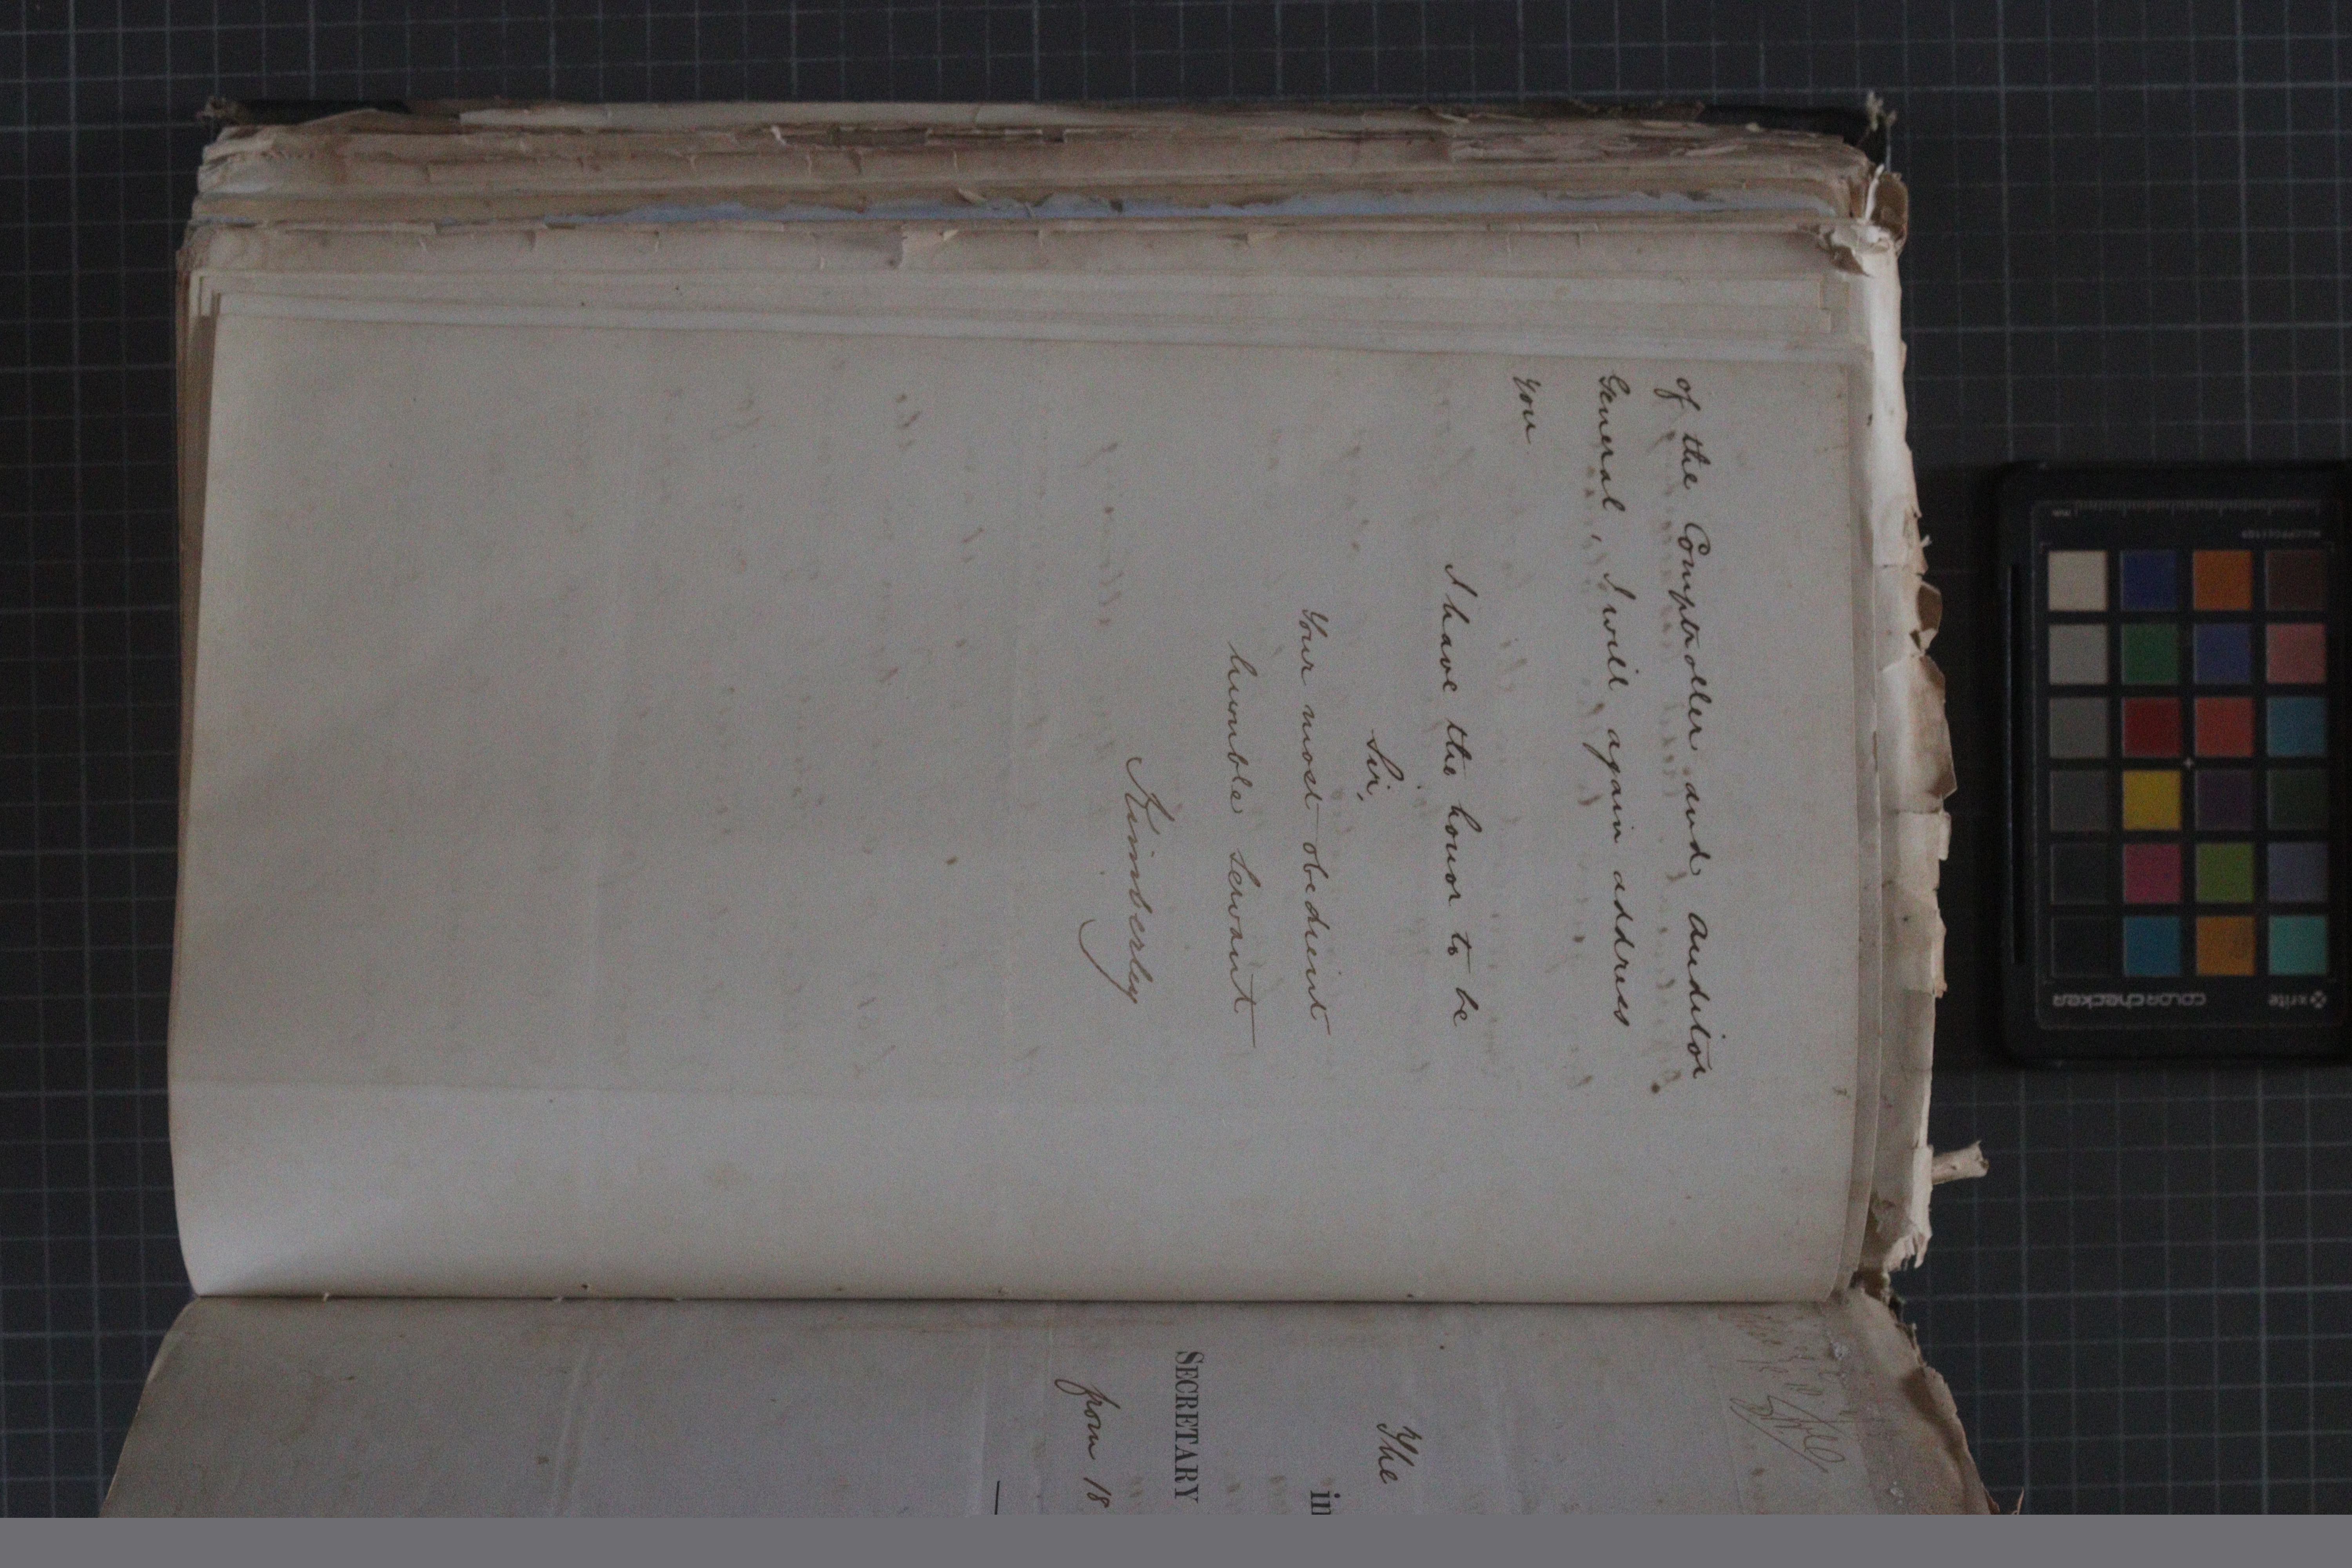 of the Comptroller and Auditor
General, I will again address
you
I have the honor to be
Sir,
Your most obedient
humble servant
Kimberley
The
in
SECRETARY
from 18
x-rite
colorchecker